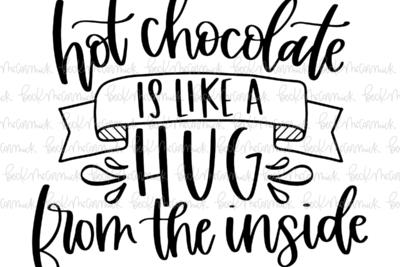 hot chocolate
IS LIKE A
HUG
from the inside